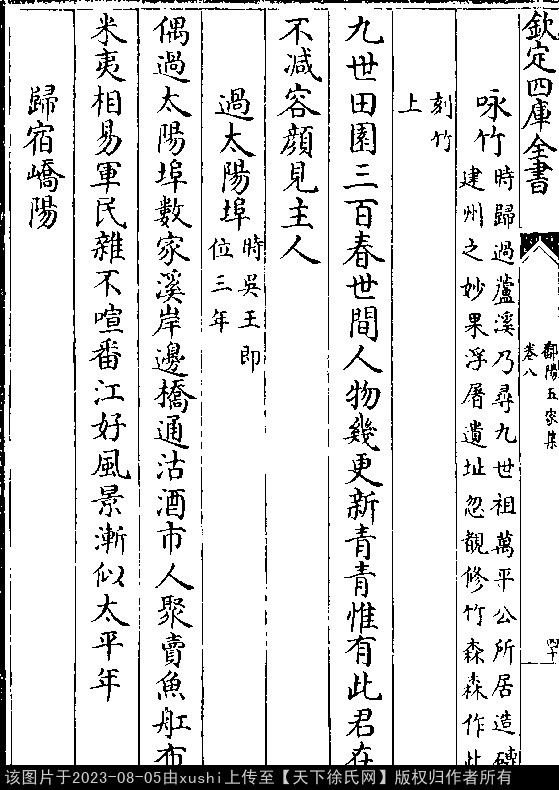 欽定四庫全書
鄱陽五家集
卷八
四十
咏竹 時歸過蘆溪乃尋九世祖萬平公所居造磚
建州之妙果浮屠遺址忽覩修竹森森作此
刻竹
上
九世田園三百春世間人物幾更新青青惟有此君在
不减容顔見主人
過太陽埠 時吳王即
位三年
偶過太陽埠數家溪岸邊橋通沽酒市人聚賣魚舡布
米夷相易軍民雜不喧番江好風景漸似太平年
歸宿嶠陽
该图片于2023-08-05由xushi上传至【天下徐氏网】版权归作者所有